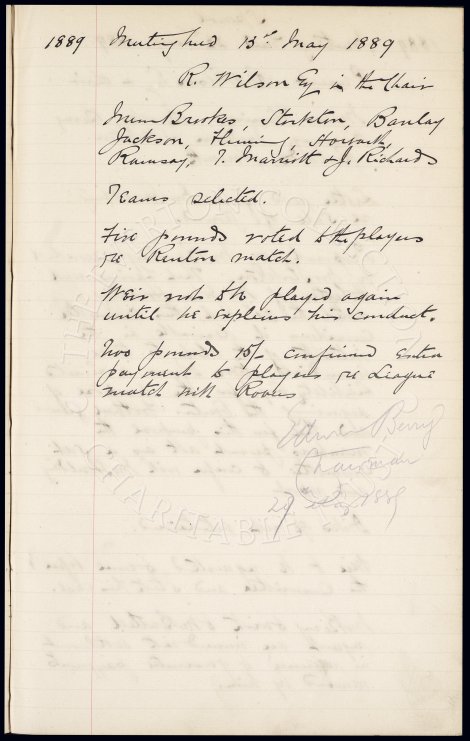 1889 Meeting held 13th May 1889
R. Wilson Esq in the Chair
Messrs Brooks, Stockton, Barclay
Jackson, Fleming, Howarth,
Ramsay, T. Marriott & J. Richards
Teams selected.
Five pounds voted to the players
re Renton match.
Weir not to be played again
until he explains his conduct.
Two pounds 10/- confirmed extra
payment to players re League
match with Rovers
Berry
Chairman
1889
CHARITABLE